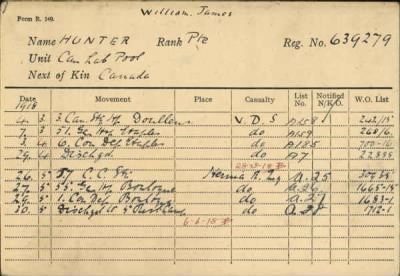 William James
Form R. 149.
Name HUNTER Rank Pte Reg. No. 639279
Unit Can Lab Pool
Next of Kin Canada
Date 1918 Movement Place Casualty List No. Notified N/K.O. W.O. List
4. 3. 3. Can. Sty Hp Doullens V.D.S A158 242/15
7. 3 51. Gen Hp Etaples do A159 268/6
3. 4 6. Con Dep Etaples do A185 700-16
29. 4 Dischgd. do A7 22888
26. 5 57 C.C. Stn do A.25
27. 5 55. Gen Hp Boulogne do A.26 1665-15
29. 5 1. Con Dep Boulogne do A.27 1683-1
30. 5 Dischgd to do A 28 1712-1
6-6-18